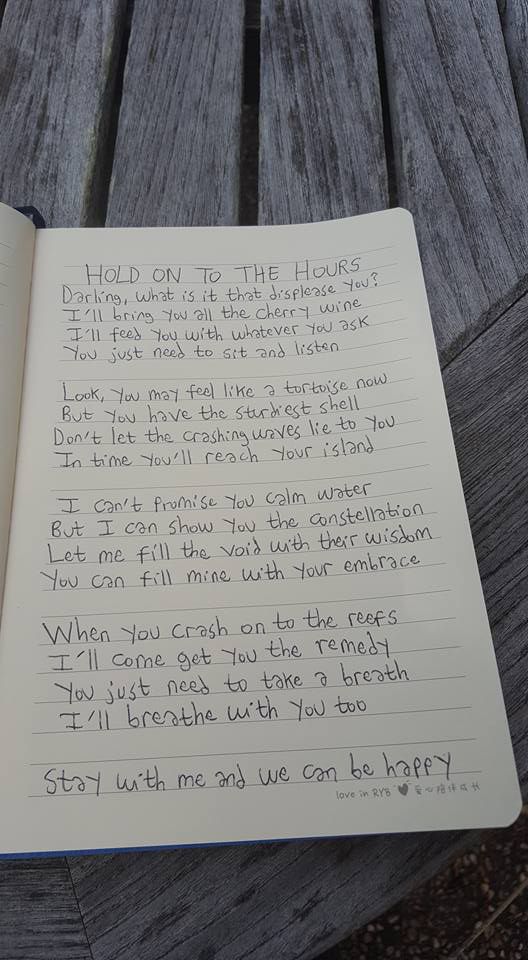 HOLD ON TO THE HOURS
Darling, what is it that displease you?
I'll bring you all the cherry wine
I'll feed you with whatever you ask
You just need to sit and listen
Look, you may feel like a tortoise now
But you have the sturdiest shell
Don't let the crashing waves lie to you
In time you'll reach your island
I can't promise you calm water
But I can show you the constellation
Let me fill the void with their wisdom
You can fill mine with your embrace
When you crash on to the reefs
I'll come get you the remedy
You just need to take a breath
I'll breathe with you too
Stay with me and we can be happy
love in RYB 爱心陪伴成长